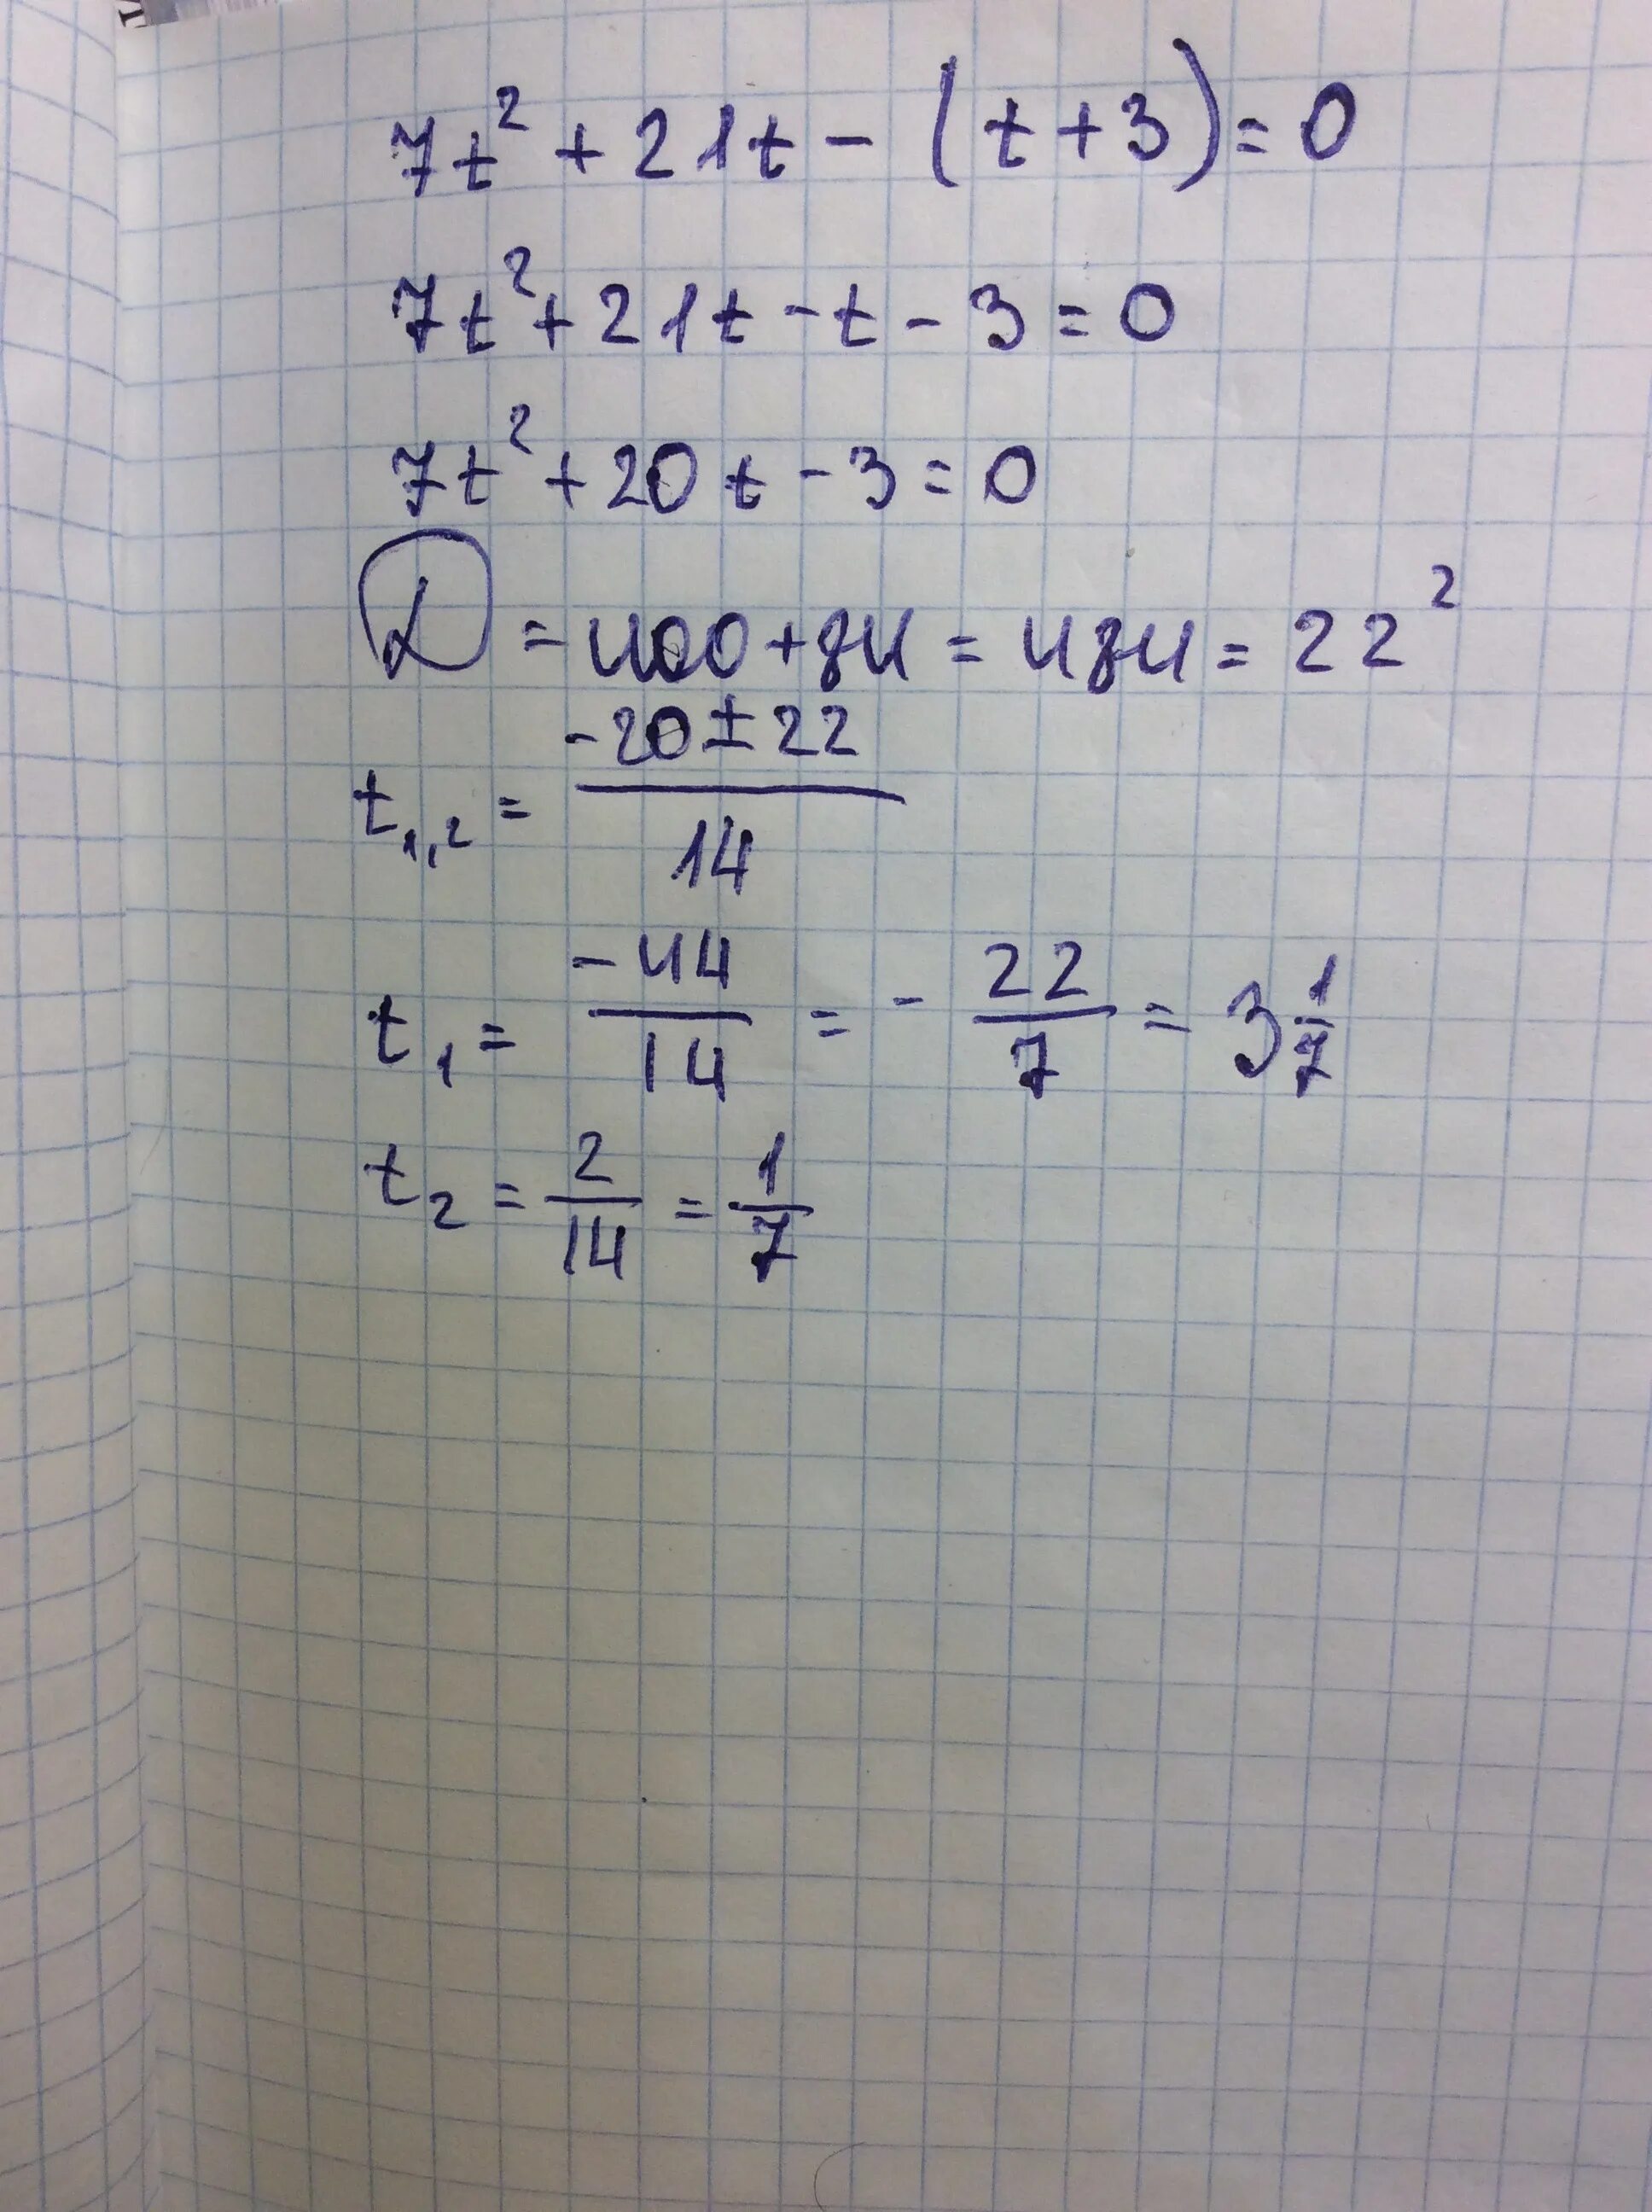 7t² + 21t - (t + 3) = 0
7t² + 21t - t - 3 = 0
7t² + 20t - 3 = 0
D = 400 + 84 = 484 = 22²
t₁,₂ = (-20 ± 22)/14
t₁ = -44/14 = - 22/7 = 3 1/7
t₂ = 2/14 = 1/7